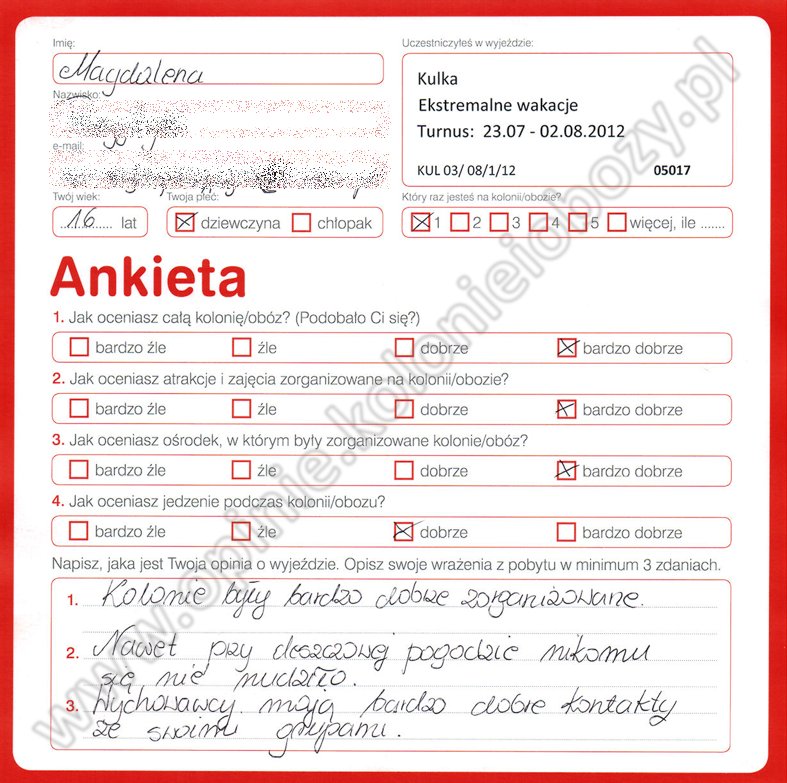 Imię:
Magdalena
Uczestniczyłeś w wyjeździe:
Kulka
Ekstremalne wakacje
Turnus: 23.07 - 02.08.2012
KUL 03/ 08/1/12 05017
Nazwisko:
e-mail:
Twój wiek: Twoja płeć: Który raz jesteś na kolonii/obozie?
16 lat dziewczyna chłopak 1 2 3 4 5 więcej, ile .......
Ankieta
1. Jak oceniasz całą kolonię/obóz? (Podobało Ci się?)
bardzo źle źle dobrze bardzo dobrze
2. Jak oceniasz atrakcje i zajęcia zorganizowane na kolonii/obozie?
bardzo źle źle dobrze bardzo dobrze
3. Jak oceniasz ośrodek, w którym były zorganizowane kolonie/obóz?
bardzo źle źle dobrze bardzo dobrze
4. Jak oceniasz jedzenie podczas kolonii/obozu?
bardzo źle źle dobrze bardzo dobrze
Napisz, jaka jest Twoja opinia o wyjeździe. Opisz swoje wrażenia z pobytu w minimum 3 zdaniach.
1. Kolonie były bardzo dobrze zorganizowane.
2. Nawet przy deszczowej pogodzie nikomu
się nie nudziło.
3. Wychowawcy mają bardzo dobre kontakty
ze swoimi grupami.
www.opinie.kolonieiobozy.pl